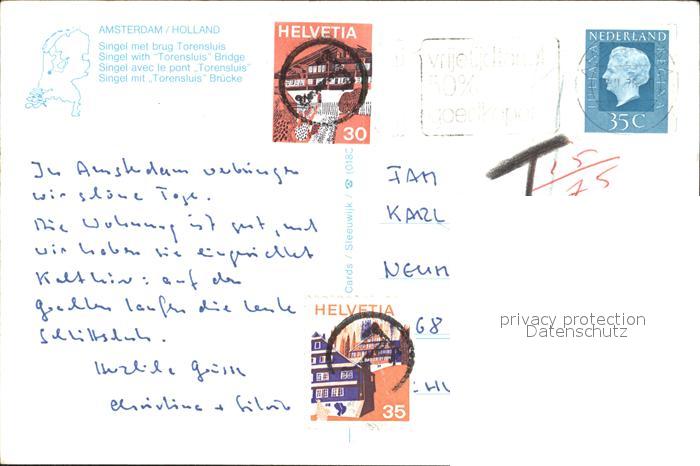 AMSTERDAM / HOLLAND
Singel met brug Torensluis
Singel with "Torensluis" Bridge
Singel avec le pont „Torensluis"
Singel mit „Torensluis" Brücke
HELVETIA
30
vrije
50%
goedkoper
NEDERLAND
JULIANA REGINA
35 C
T 15/75
In Amsterdam verbringen
wir schöne Tage.
Die Wohnung ist gut, und
wir haben sie eingerichtet
auf den
laufen die Leute
Schlittschuh.
Herzliche Grüsse
Christine +
Cards / Sleeuwijk /
FAM
KARL
NEUH
68
HELVETIA
35
privacy protection
Datenschutz